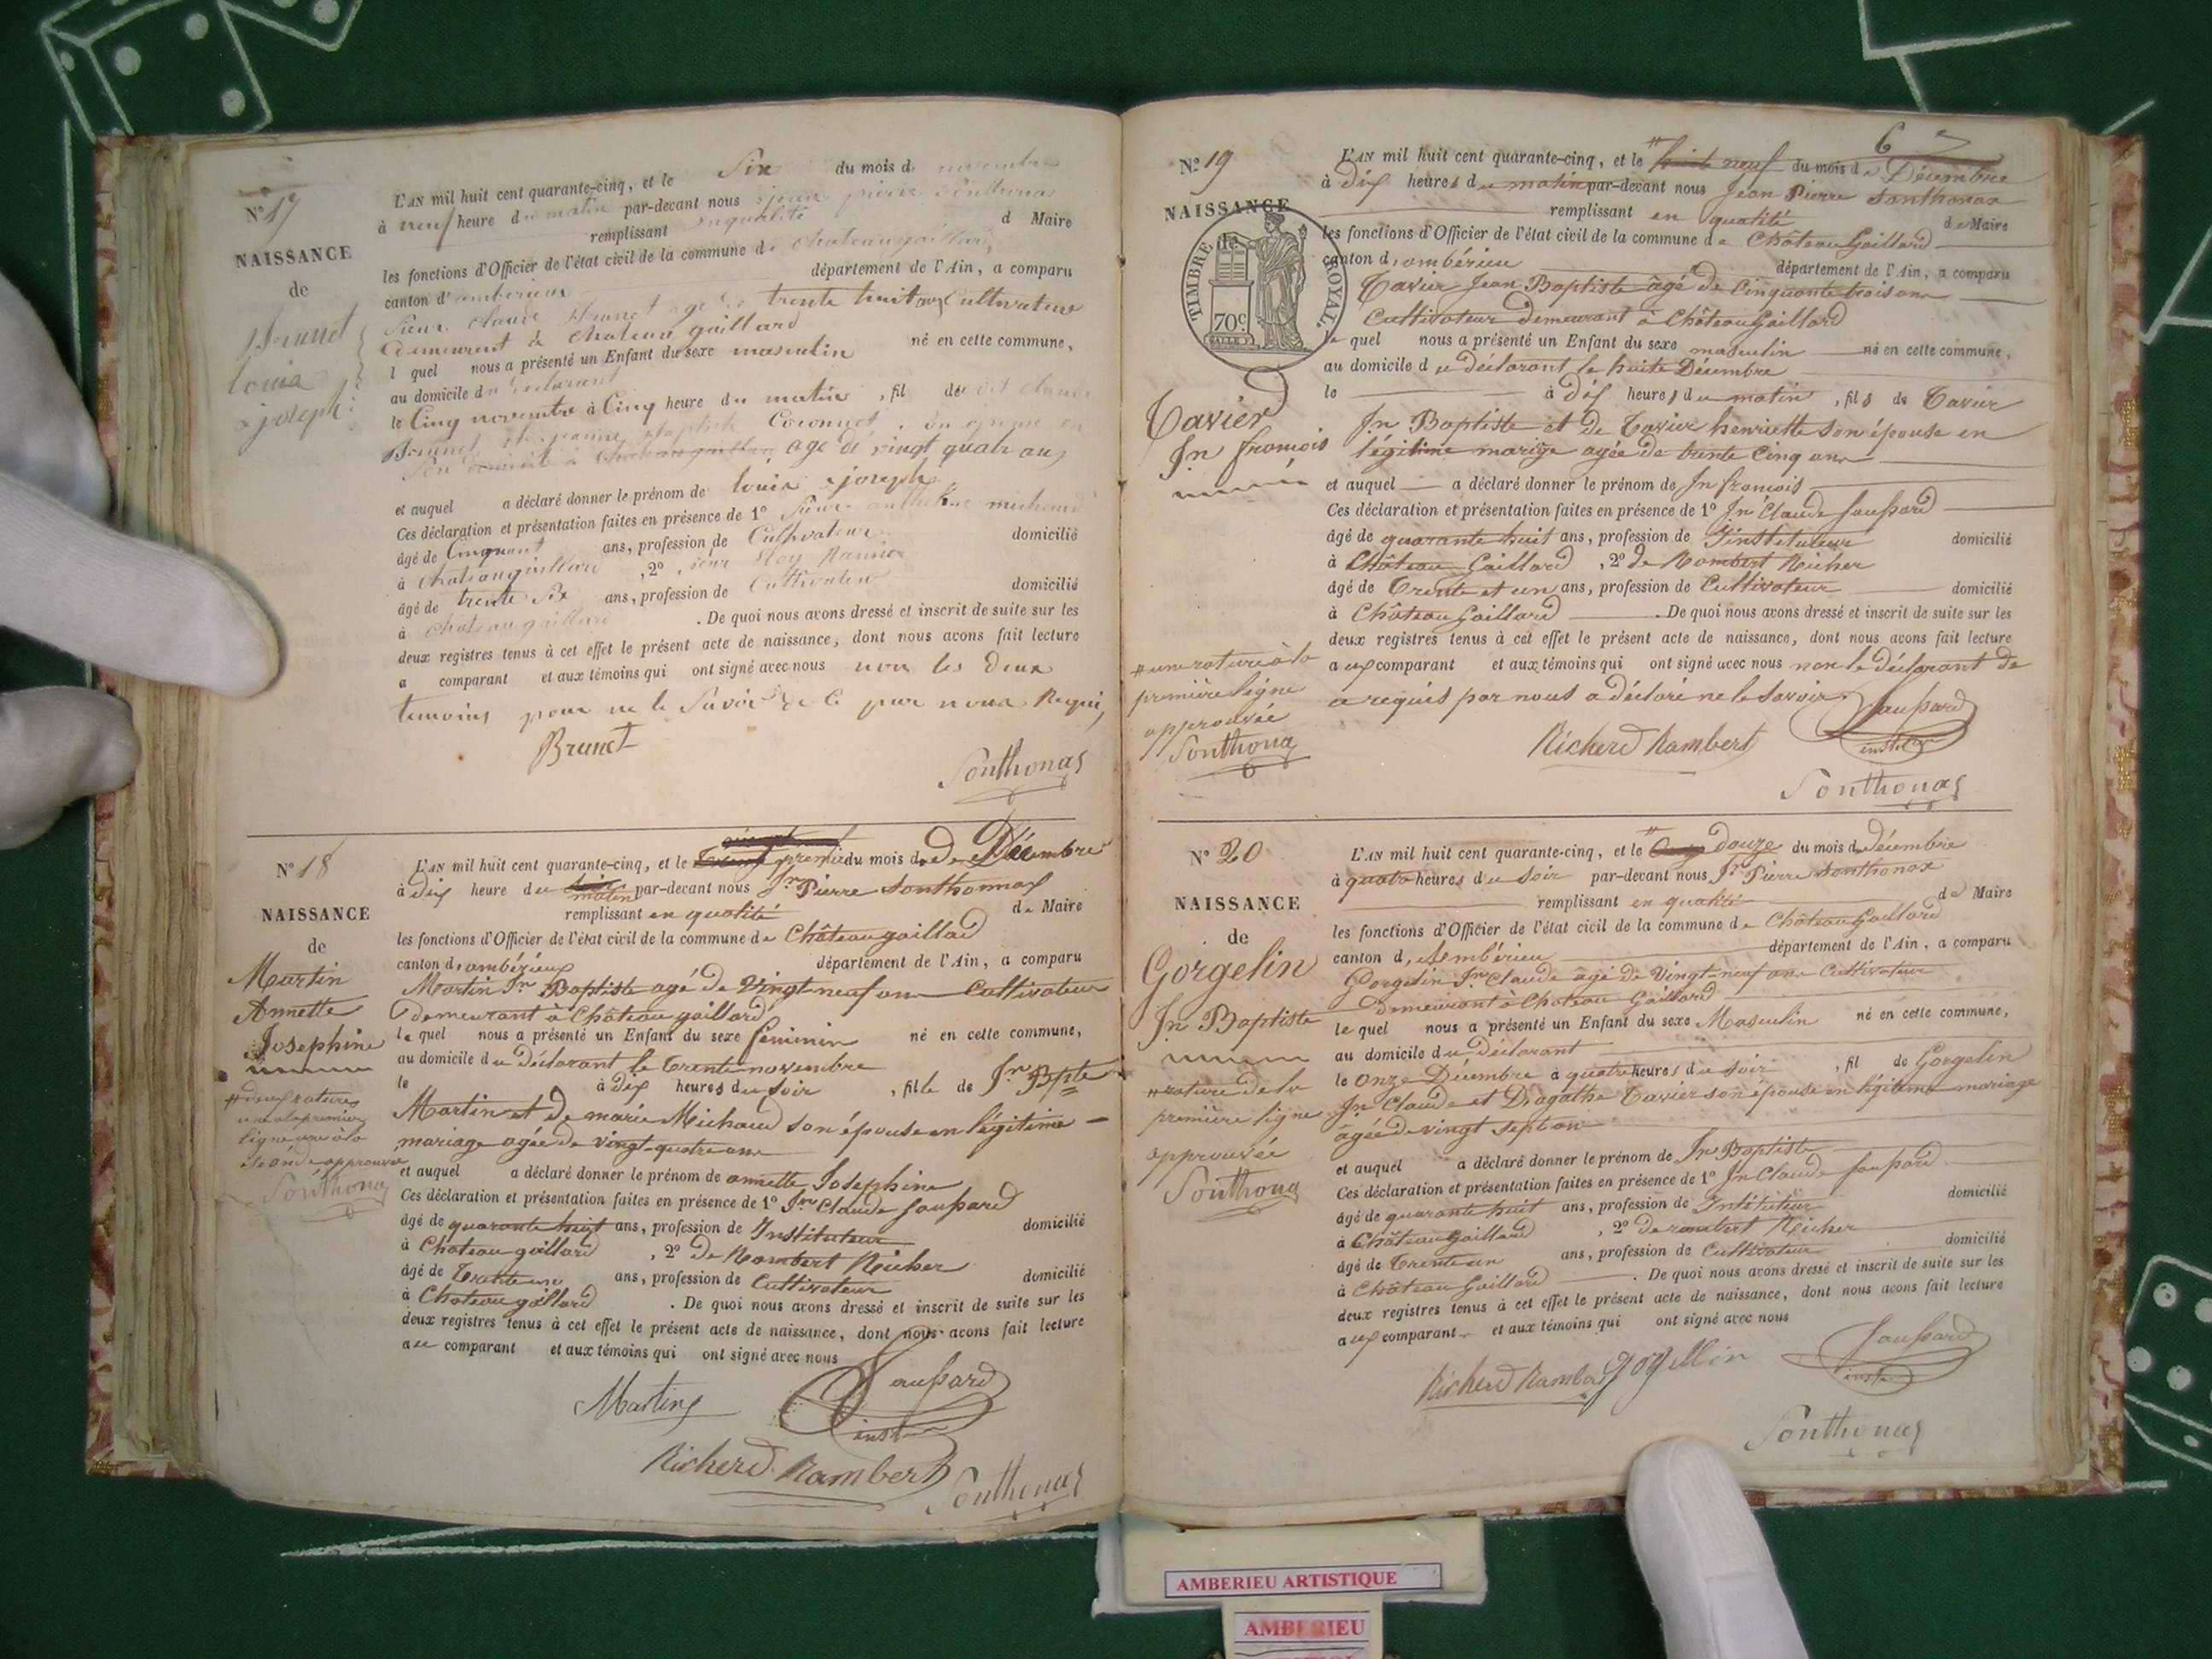 N° 17
NAISSANCE
de
Brunet
louis
joseph
L'AN mil huit cent quarante-cinq, et le Six du mois de novembre
à neuf heure du matin par-devant nous jean pierre Sonthonas
remplissant en qualité d Maire
les fonctions d'Officier de l'état civil de la commune de chateaugaillard
canton d'amberieux département de l'Ain, a comparu
Sieur Claude Brunet agé de trente huit ans Cultivateur
demeurent à chateau gaillard
l quel nous a présenté un Enfant du sexe masculin né en cette commune,
au domicile du declarant
le Cinq novembre à Cinq heure du matin, fil de Claude
Brunet jeanne Baptiste
Son domicile à chateaugaillard age de vingt quatr ans
et auquel a déclaré donner le prénom de louis joseph
Ces déclaration et présentation faites en présence de 1° Sieur anthelme michaud
âgé de Cinquant ans, profession de Cultivateur domicilié
à chateaugaillard, 2° Eloy
âgé de trente Six ans, profession de Cultivateur domicilié
à chateaugaillard. De quoi nous avons dressé et inscrit de suite sur les
deux registres tenus à cet effet le présent acte de naissance, dont nous avons fait lecture
a comparant et aux témoins qui ont signé avec nous non les deux
temoins pour ne le Savoir de Ce par nous Requi
Brunet
Sonthonas
N° 18
NAISSANCE
de
Martin
Annette
Josephine
# deux ratures
une a la premier
ligne une à la
seconde approuvé
Sonthonas
L'AN mil huit cent quarante-cinq, et le premier du mois de Décembre
à dix heure du matin par-devant nous Jn Pierre Sonthonnax
remplissant en qualité de Maire
les fonctions d'Officier de l'état civil de la commune de Châteaugaillad
canton d'ambérieux département de l'Ain, a comparu
Martin Jn Baptiste agé de Vingt-neuf ans Cultivateur
demeurant à Château gaillard
le quel nous a présenté un Enfant du sexe féminin né en cette commune,
au domicile du déclarant le trente novembre
le à dix heures du soir, fille de Jn Bpte
Martin et de marie Michaud son épouse en légitime
mariage agée de vingt-quatre ans
et auquel a déclaré donner le prénom de annette Josephine
Ces déclaration et présentation faites en présence de 1° Jn Claude Saupard
âgé de quarante huit ans, profession de Instituteur domicilié
à Chateau gaillard, 2° de Rombert Richer
âgé de Trente un ans, profession de Cultivateur domicilié
à Chateau gaillard. De quoi nous avons dressé et inscrit de suite sur les
deux registres tenus à cet effet le présent acte de naissance, dont nous avons fait lecture
au comparant et aux témoins qui ont signé avec nous
Martin
Saupard
inst
Richerd Rambert
Sonthonas
6
N° 19
NAISSANCE
TIMBRE ROYAL.
70c.
Tavier
Jn françois
# une rature à la
première ligne
approuvée
Sonthonas
L'AN mil huit cent quarante-cinq, et le neuf du mois de Décembre
à dix heures du matin par-devant nous Jean Pierre Sonthonax
remplissant en qualité de Maire
les fonctions d'Officier de l'état civil de la commune de Château Gaillard
canton d'ambérieu département de l'Ain, a comparu
Tavier Jean Baptiste âgé de Cinquante trois ans
Cultivateur demeurant à Château Gaillard
le quel nous a présenté un Enfant du sexe masculin né en cette commune,
au domicile du déclarant le huite Décembre
le à dix heures du matin, fils de Tavier
Jn Baptiste et de Tavier henriette son épouse en
légitime mariage agée de trente Cinq ans
et auquel a déclaré donner le prénom de Jn françois
Ces déclaration et présentation faites en présence de 1° Jn Claude Saupard
âgé de quarante huit ans, profession de Instituteur domicilié
à Château Gaillard, 2° de Rombert Richer
âgé de Trente et un ans, profession de Cultivateur domicilié
à Château Gaillard. De quoi nous avons dressé et inscrit de suite sur les
deux registres tenus à cet effet le présent acte de naissance, dont nous avons fait lecture
aux comparant et aux témoins qui ont signé avec nous non le déclarant de
ce requis par nous a déclaré ne le savoir
Saupard
Richerd Rambert
Sonthonas
N° 20
NAISSANCE
de
Gorgelin
Jn Baptiste
# rature de la
première ligne
approuvée
Sonthonas
L'AN mil huit cent quarante-cinq, et le douze du mois d Décembre
à quatre heures du soir par-devant nous Jn Pierre Sonthonax
remplissant en qualité de Maire
les fonctions d'Officier de l'état civil de la commune de Château Gaillard
canton d'Ambérieu département de l'Ain, a comparu
Gorgelin Jn Claude âgé de Vingt-neuf ans Cultivateur
demeurant à Chateau Gaillard
le quel nous a présenté un Enfant du sexe Masculin né en cette commune,
au domicile du déclarant
le onze Décembre à quatre heures du soir, fil de Gorgelin
Jn Claude et D'agathe Tavier son épouse en légitime mariage
âgée de vingt sept ans
et auquel a déclaré donner le prénom de Jn Baptiste
Ces déclaration et présentation faites en présence de 1° Jn Claude Saupard
âgé de quarante huit ans, profession de Instituteur domicilié
à Château Gaillard, 2° de rambert Richer
âgé de Trente un ans, profession de Cultivateur domicilié
à Château Gaillard. De quoi nous avons dressé et inscrit de suite sur les
deux registres tenus à cet effet le présent acte de naissance, dont nous avons fait lecture
aux comparant et aux témoins qui ont signé avec nous
Saupard
Richerd Rambert gorgellin
Sonthonas
AMBERIEU ARTISTIQUE
AMBERIEU